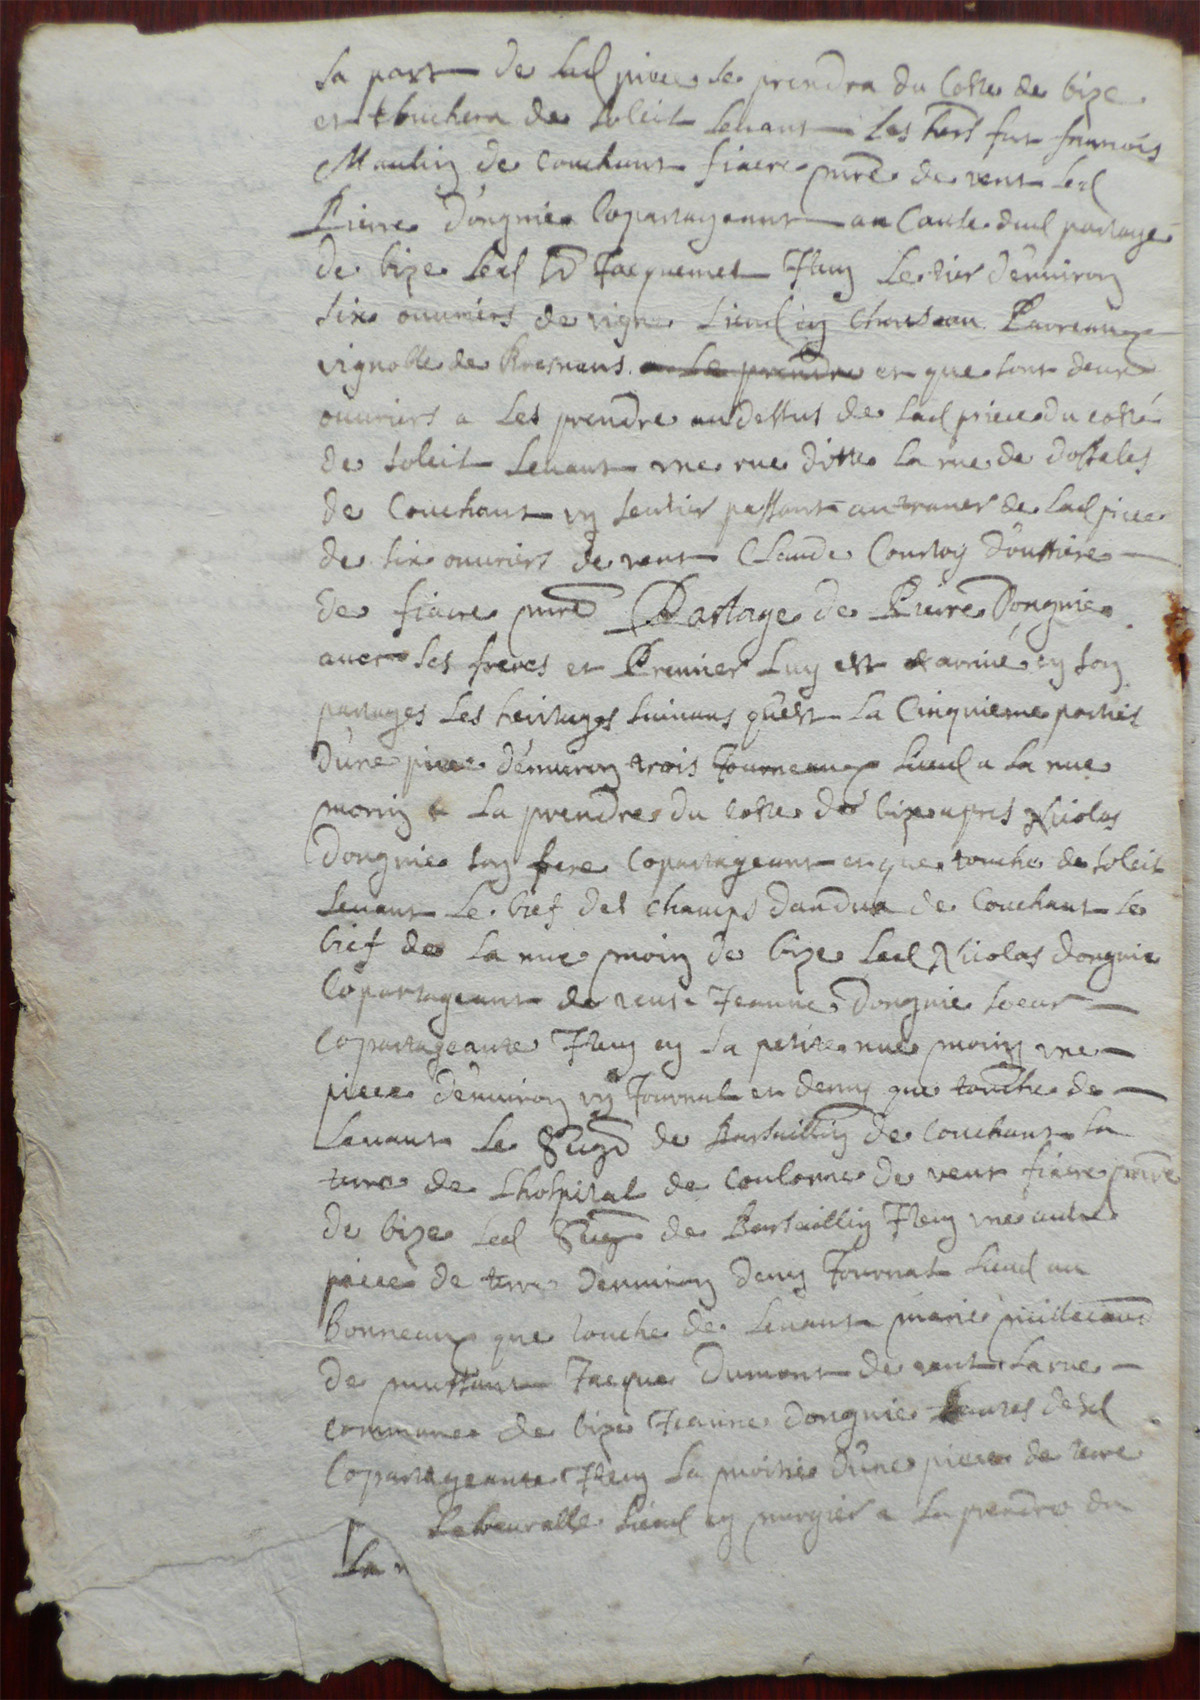 sa part de lad piece se prendra du Costé de bize
et touchera de soleil levant Les hers fut francois
Maulin de Couchant fiacre pirre de vent led
Pierre Dongnier Copartageant au Cause dud partage
de bize led Jacquemet Item Le tier d'environ
six ouvriers de vigne Lieud en Chasteau
vignoble de Bresnans et que sont deux
ouvriers a Les prendre au dessus de lad piece du costé
de soleil Levant une rue ditte la rue de
de Couchant un sentier passant au traver de lad piece
de six ouvriers de vent Claude Courtoy
de fiacre Partage de Pierre Dongnier
avec ses freres et Premier Luy est arrivé en son
partages Les heritages suivans qu'est La Cinquieme parties
d'une piece d'environ trois Journeaux Lieud a La nue
morin a La prendre du costé de bize apres Nicolas
Dongnie son frere Copartageant et que touche de soleil
Levant Le bief des Champs de Couchant Le
bief de La nue moin de bize Led Nicolas dongnie
Copartageant de vent Jeanne Dongnie soeur
Copartageante Item en La petite nue moin une
piece d'environ un Journal et demy que touche de
Levant Le Seigr de Barsaillin de Couchant La
terre de Lhospital de Coulonne de vent fiacre
de bize led Seigr de Barsaillin Item une autre
piece de terre d'environ demy Journal Lieud au
bonneaux que touche de Levant marie
de Jacque Dumont de vent La rue
commune de bize Jeanne Dongnie
Copartageante Item La moitié d'une piece de terre
Lieud en murgier a La prendre du
La